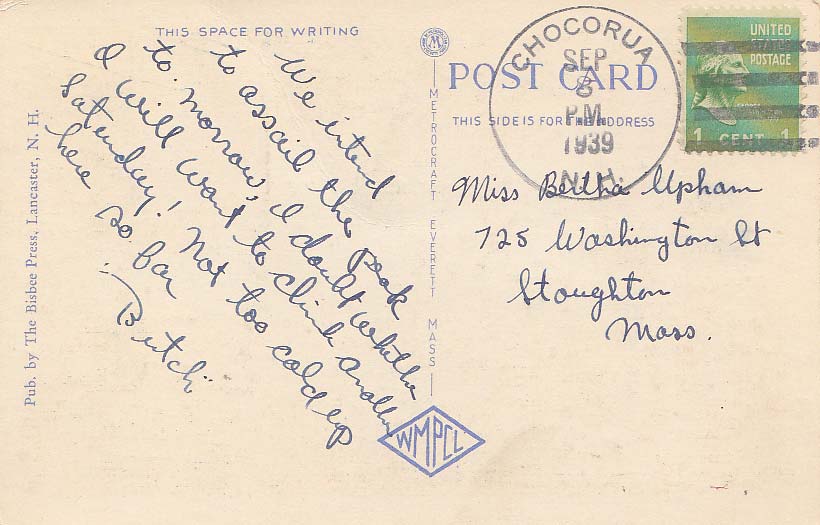 THIS SPACE FOR WRITING
We intend
to assail the peak
to-morrow, I doubt whether
I will want to climb another
Saturday! Not too cold up
here so far
:-) Butch
Pub. by The Bisbee Press, Lancaster, N. H.
M
METROCRAFT EVERETT MASS
WMPCL
POST CARD
THIS SIDE IS FOR THE ADDRESS
CHOCORUA
SEP
P.M.
1939
N.H.
UNITED
STATES
POSTAGE
1 CENT 1
Miss Bertha Upham
725 Washington St
Stoughton
Mass.